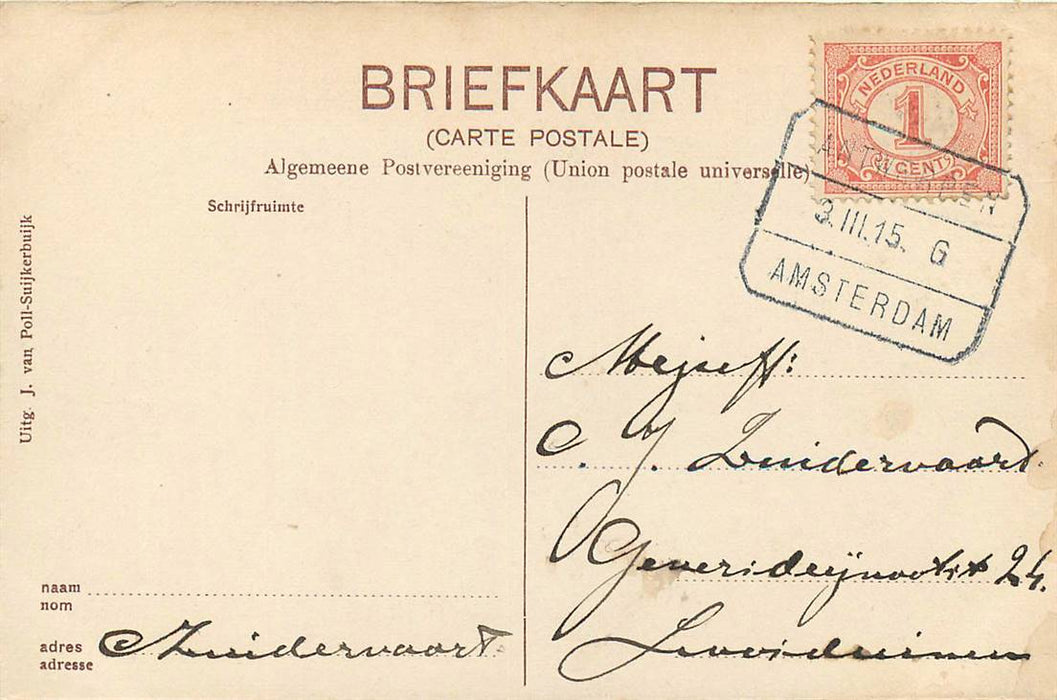 BRIEFKAART
(CARTE POSTALE)
Algemeene Postvereeniging (Union postale universelle)
NEDERLAND
1
CENT
ANTWERPEN
3.III.15. G
AMSTERDAM
Schrijfruimte
Uitg. J. van Poll-Suijkerbuijk
Mejuff:
C. J. Zuidervaart.
24.
Loosduinen
naam
nom
adres
adresse
Zuidervaart.